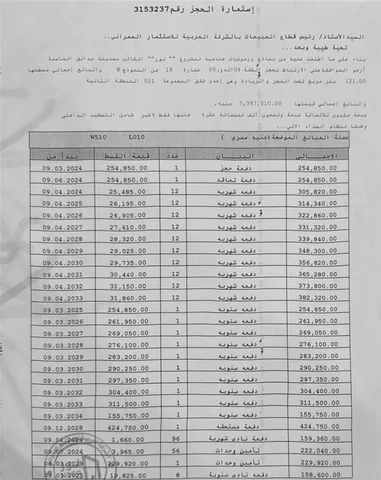 إستمارة الحجز رقم 3153237
السيد الأستاذ/ رئيس قطاع المبيعات بالشركة العربية للاستثمار العمراني..
تحية طيبة وبعد...
بناء على ما اطلعت عليه من نماذج ورسومات هندسية لمشروع "" نور"" الكائن بمدينة حدائق العاصمة
أرجو الموافقة على الارتباط لحجز شقة 04 الدور 05 عمارة 18 من النموذج B والبالغ إجمالي مسطحها
121.00 متر مربع تحت العجز والزيادة وهي إحدى شقق المجموعة 021 المنطقة الثانية
والبالغ إجمالي قيمتها 7,397,510.00 جنيه،
سبعة مليون ثلاثمائة سبعة وتسعون ألف خمسمائة عشرة جنيها فقط لاغير شامل التشطيب الداخلي
وطبقا لنظام السداد الآتي...
عملة المبالغ الموضحة (جنيه مصري ) L010 W510
الاجمالـــى البيـــــان عدد قيمة القسط يبدأ من
254,850.00 دفعة حجز 1 254,850.00 09.03.2024
254,850.00 دفعة تعاقد 1 254,850.00 09.06.2024
305,820.00 دفعه شهريه 12 25,485.00 09.04.2024
314,340.00 دفعه شهريه 12 26,195.00 09.04.2025
322,860.00 دفعه شهريه 12 26,905.00 09.04.2026
331,320.00 دفعه شهريه 12 27,610.00 09.04.2027
339,840.00 دفعه شهريه 12 28,320.00 09.04.2028
348,300.00 دفعه شهريه 12 29,025.00 09.04.2029
356,820.00 دفعه شهريه 12 29,735.00 09.04.2030
365,280.00 دفعه شهريه 12 30,440.00 09.04.2031
373,800.00 دفعه شهريه 12 31,150.00 09.04.2032
382,320.00 دفعه شهريه 12 31,860.00 09.04.2033
254,850.00 دفعه سنويه 1 254,850.00 09.03.2025
261,950.00 دفعه سنويه 1 261,950.00 09.03.2026
269,050.00 دفعه سنويه 1 269,050.00 09.03.2027
276,100.00 دفعه سنويه 1 276,100.00 09.03.2028
283,200.00 دفعه سنويه 1 283,200.00 09.03.2029
290,250.00 دفعه سنويه 1 290,250.00 09.03.2030
297,350.00 دفعه سنويه 1 297,350.00 09.03.2031
304,400.00 دفعه سنويه 1 304,400.00 09.03.2032
311,500.00 دفعه سنويه 1 311,500.00 09.03.2033
155,750.00 دفعه سنويه 1 155,750.00 09.03.2034
424,750.00 دفعة مستحقه 1 424,750.00 09.12.2028
159,360.00 دفعة نادى شهرية 96 1,660.00 09.04.2024
222,040.00 تأمين وحدات 56 3,965.00
229,920.00 تأمين وحدات 1 229,920.00
158,600.00 دفعة نادى سنوية 8 19,825.00 09.03.2025